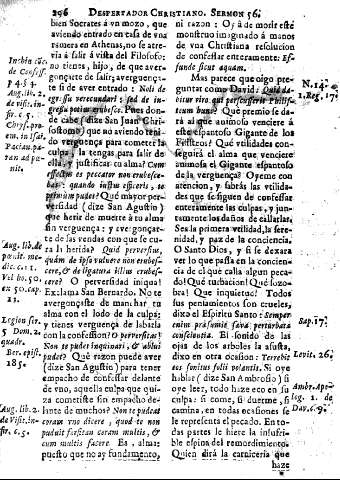 296 DESPERTADOR CHRISTIANO. SERMON 56.
bien Socrates à vn mozo, que
aviendo entrado en casa de vna
ramera en Athenas, no se atre-
via à salir à vista del Filosofo:
no tienes, hijo, de que aver-
gonçarte de salir; averguença-
te si de aver entrado: Noli de
egressu verecundari; sed de in-
gressu potius erubesce. Pues don-
de cabe (dize San Juan Chri-
sostomo) que no aviendo teni-
do verguença para cometer la
culpa, la tengas para salir de
ella, y justificar tu alma? Cum
effectum es peccator non erubesce-
bas: quando iustus efficeris, te
primum pudet? Què mayor per-
versidad (dize San Agustin)
que herir de muerte à tu alma
sin verguença; y avergonçar-
te de las vendas con que se cu-
ra la herida? Quid perversius,
quàm de ipso vulnere non erubes-
cere, & de ligatura illius erubes-
cere? O perversidad iniqua!
Exclama San Bernardo. No te
avergonçaste de manchar tu
alma con el lodo de la culpa;
y tienes verguença de labarla
con la confession? O perversitas!
Non te pudet inquinari, & ablui
pudet? Què razon puede aver
(dize San Agustin) para tener
empacho de confessar delante
de vno, aquella culpa que qui-
za cometiste sin empacho de-
lante de muchos? Non te pudeat
coram vno dicere, quod te non
puduit forsitan coram multis, &
cum multis facere. Ea, alma:
puesto que no ay fundamento,
In hæc
de Confess.
p. 454.
Aug. lib. 2.
de visit. in-
fir. c. 5.
Chrys. pro-
em. in Isai.
Pacian. pa-
ran. ad pœ-
nit.
Aug. lib. de
pœnit. me-
dic. c. 11.
Vel ho. 50.
ex 50. cap.
12.
Legion ser.
5 Dom. 2.
quadr.
Ber. epist.
185.
Aug. lib. 2.
de Visit. in-
fir. c. 5.
ni razon: O y à de morir este
monstruo imaginado à manos
de vna Christiana resolucion
de confessar enteramente: Ef-
funde sicut aquam.
Mas parece que oigo pre-
guntar como David: Quid da-
bitur viro, qui percusserit Philis-
tæum hunc? Què premio se da-
rà al que animoso venciere à
este espantoso Gigante de los
Filisteos? Què vtilidades con-
seguirà el alma que venciere
animosa el Gigante espantoso
de la verguença? Oyeme con
atencion, y sabràs las vtilida-
des que se siguen de confessar
enteramente las culpas, y jun-
tamente los daños de callarlas.
Sea la primera vtilidad, la sere-
nidad, y paz de la conciencia.
O Santo Dios, y si se dexara
ver lo que passa en la concien-
cia de el que calla algun peca-
do! Què turbacion! Què zozo-
bra! Què inquietud! Todos
sus pensamientos son crueles,
dixo el Espiritu Santo: Semper
enim præsumit sæva perturbata
conscientia. El sonido de las
ojas de los arboles la assusta,
dixo en otra ocasion: Terrebit
eos sonitus folii volantis. Si oye
hablar (dize San Ambrosio) si
oye leer, todo haze eco en su
culpa: si come, si duerme, si
camina, en todas ocasiones se
le representa el pecado. En to-
das partes le hiere la insufri-
ble espina del remordimiento.
Quien dirà la carniceria que
haze
N. 14.
1. Reg. 17.
Sap. 17.
Levit. 26.
Ambr. Apo-
log. 1. de
Dav. c. 9.